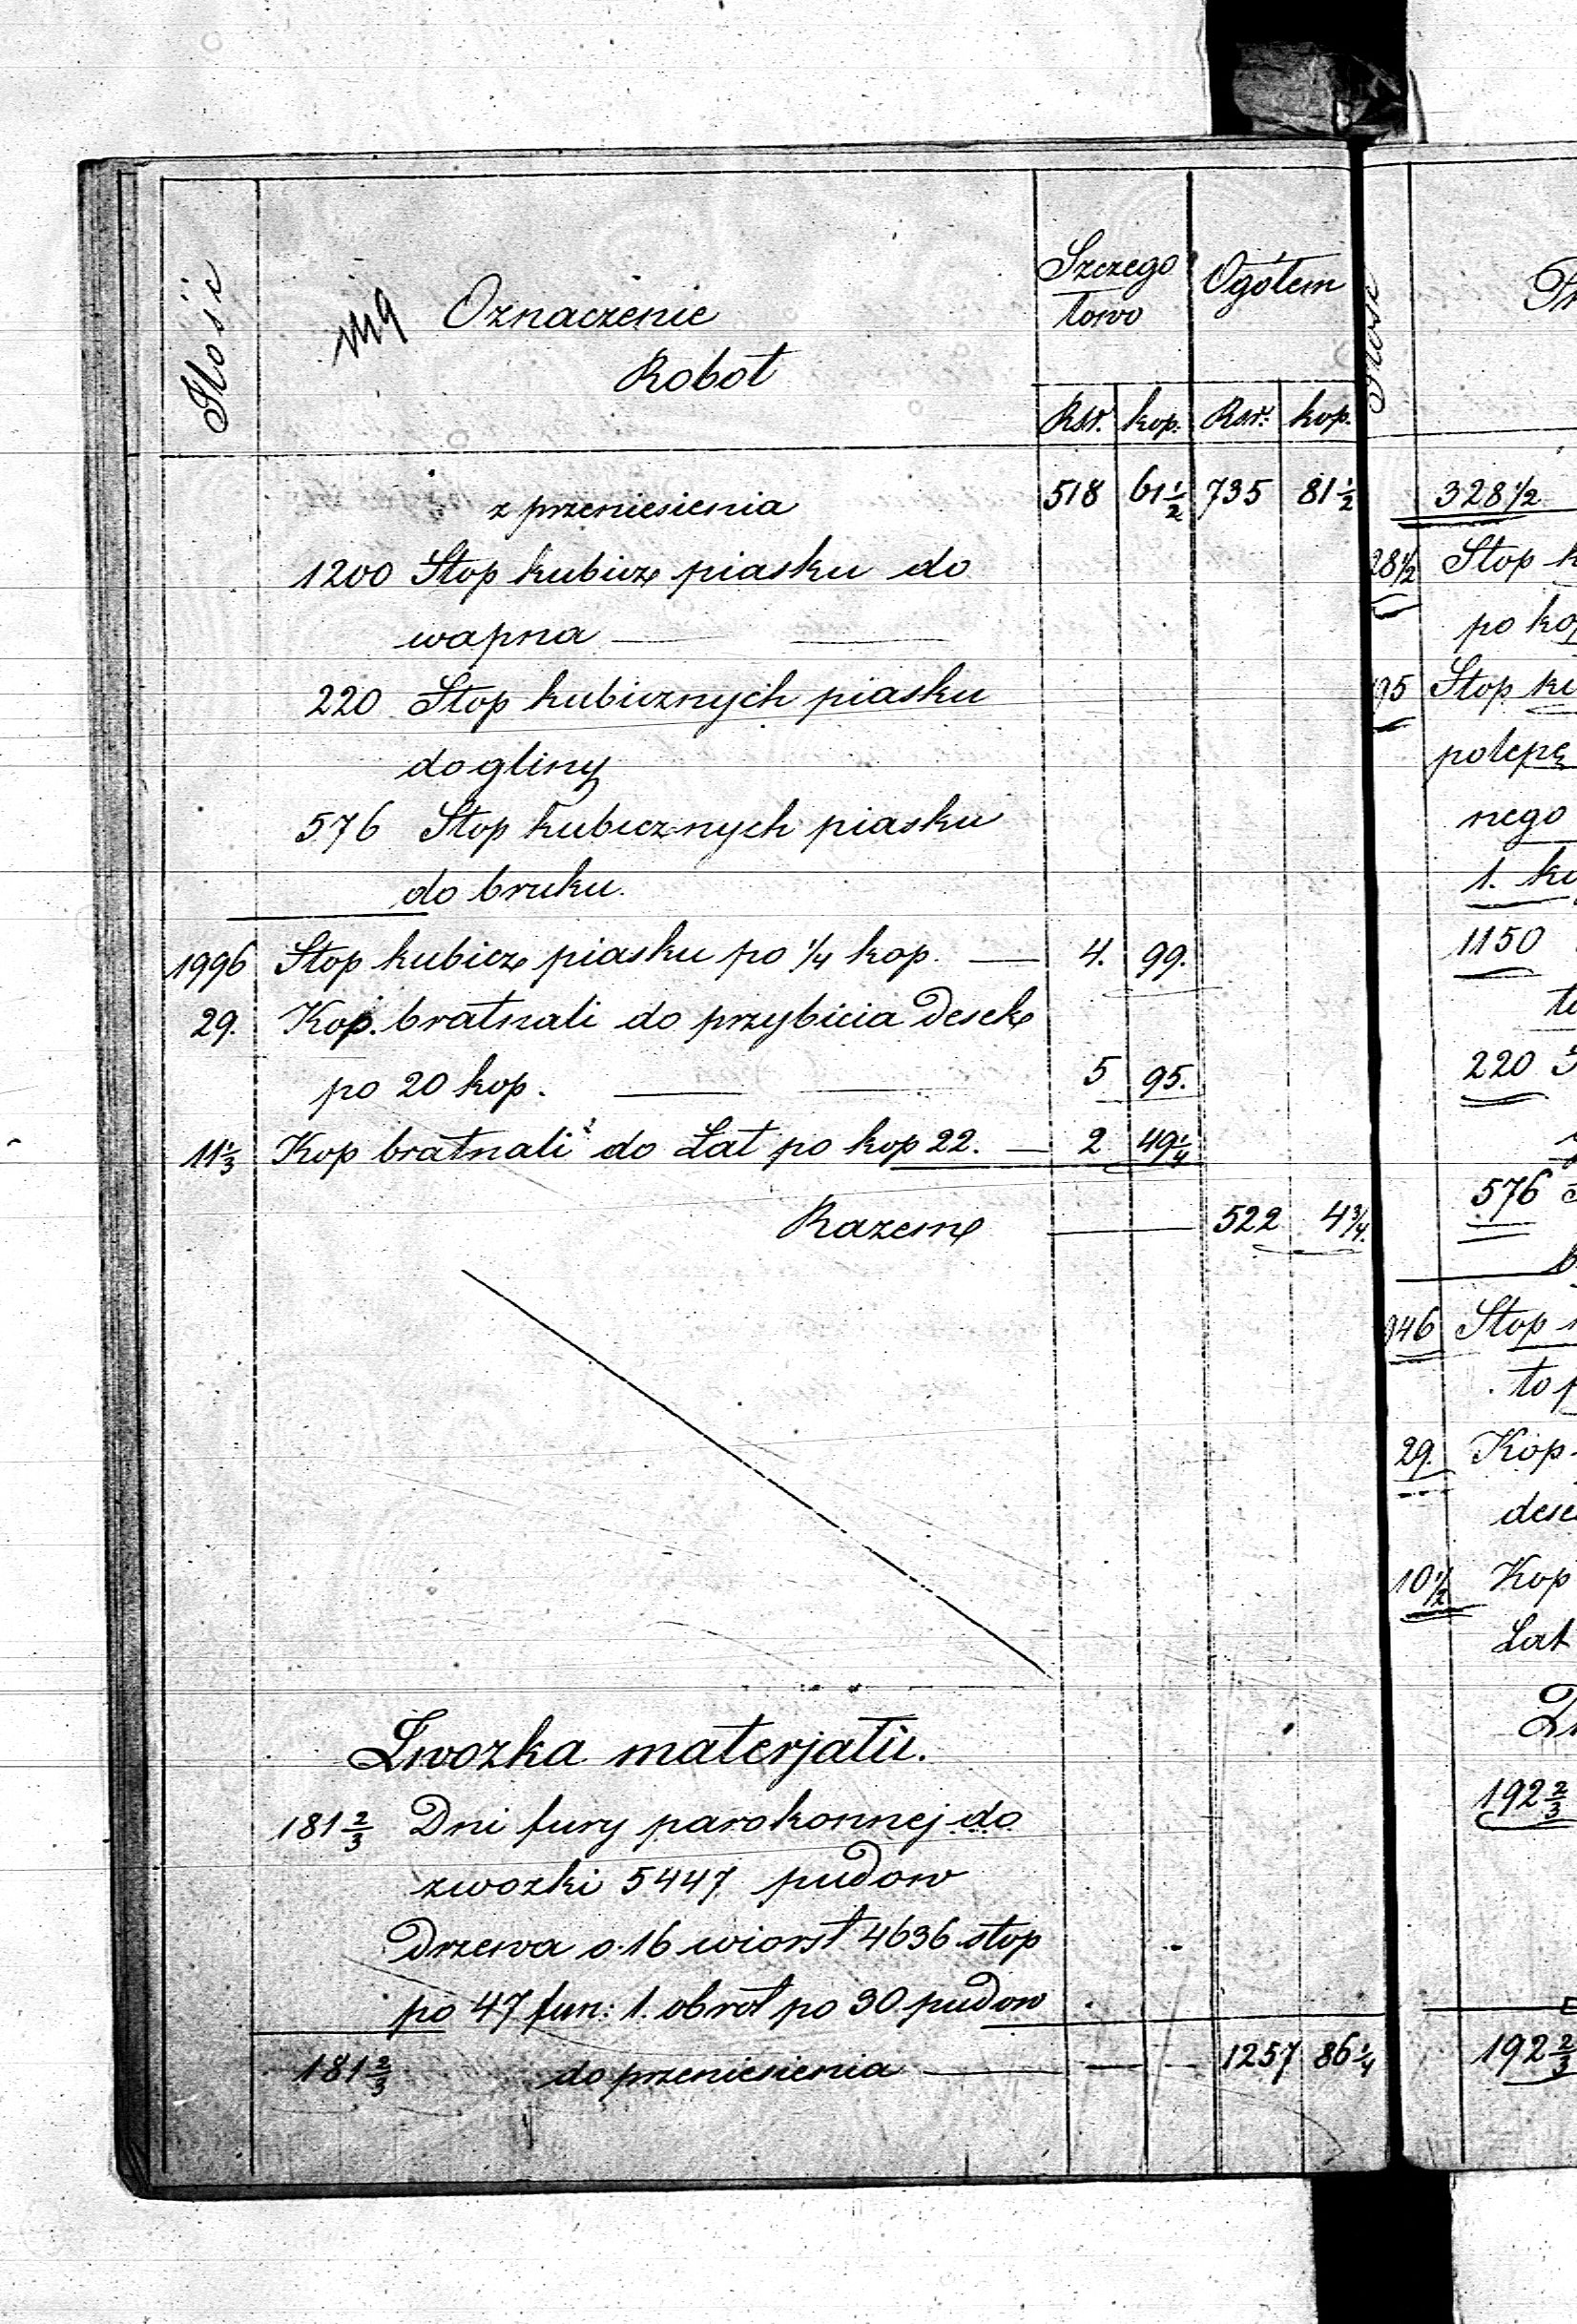 Ilość
Oznaczenie
Robot
Szczego
łowo
Ogółem
Rsr. kop. Rsr. kop.
z przeniesienia 518 61 1/2 735 81 1/2
1200 Stop kubicz piasku do
wapna
220 Stop kubicznych piasku
do gliny
576 Stop kubicznych piasku
do bruku.
1996 Stop kubicz piasku po 1/4 kop. 4. 99.
29. Kop. bratnali do przybicia desek
po 20 kop. 5 95.
11 1/3 Kop bratnali do Łat po kop 22. 2 49 1/4
Razem 522 4 3/4.
Zwozka materjałů.
181 2/3 Dni fury parokonnej do
zwozki 5447 pudow
Drzewa o 16 wiorst 4636 stop
po 47 fun: 1. obrot po 30 pudow
181 2/3 do przeniesienia 1257 86 1/4
Ilość
328 1/2
28 1/2 Stop
95 Stop
nego
1150
220
576
946 Stop
29. Kop
10 1/2 Kop
Łat
192 2/3
192 2/3